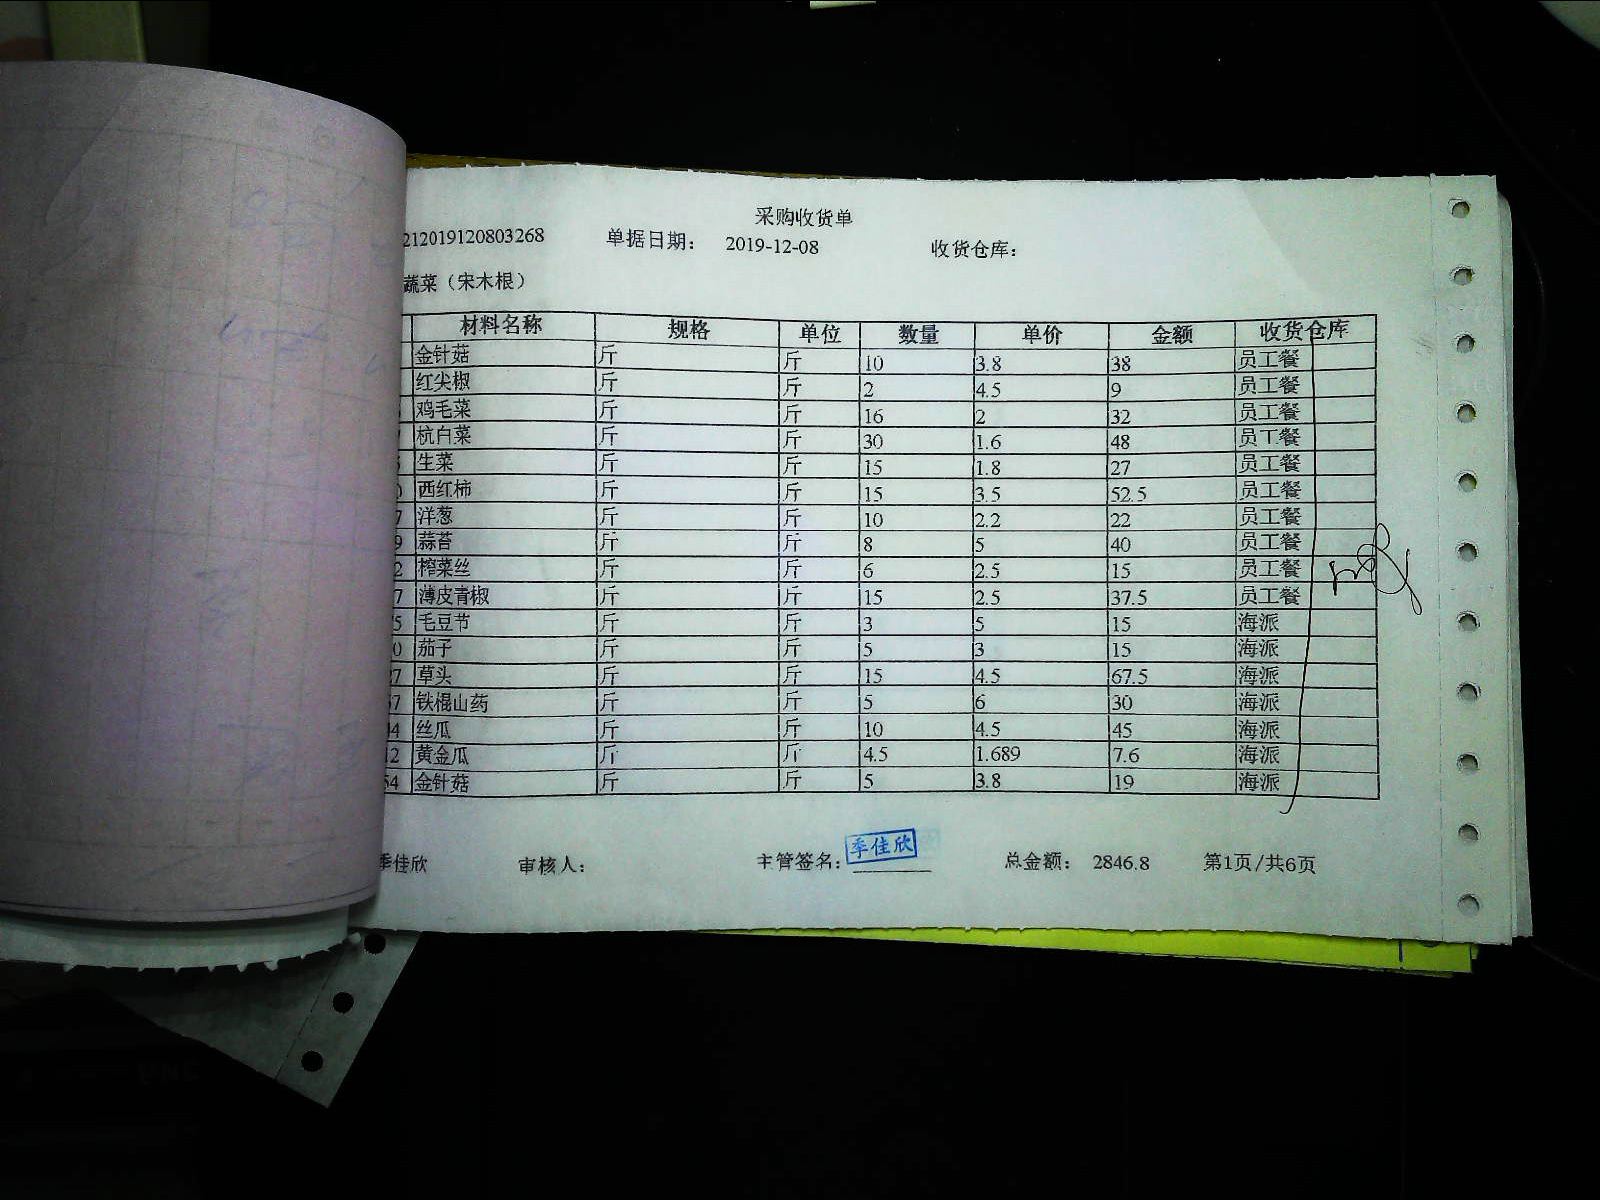 采购收货单
212019120803268 单据日期: 2019-12-08 收货仓库:
蔬菜（宋木根）
材料名称 规格 单位 数量 单价 金额 收货仓库
金针菇 斤 斤 10 3.8 38 员工餐
红尖椒 斤 斤 2 4.5 9 员工餐
鸡毛菜 斤 斤 16 2 32 员工餐
杭白菜 斤 斤 30 1.6 48 员工餐
生菜 斤 斤 15 1.8 27 员工餐
西红柿 斤 斤 15 3.5 52.5 员工餐
7 洋葱 斤 斤 10 2.2 22 员工餐
9 蒜苔 斤 斤 8 5 40 员工餐
2 榨菜丝 斤 斤 6 2.5 15 员工餐
7 薄皮青椒 斤 斤 15 2.5 37.5 员工餐
5 毛豆节 斤 斤 3 5 15 海派
0 茄子 斤 斤 5 3 15 海派
7 草头 斤 斤 15 4.5 67.5 海派
7 铁棍山药 斤 斤 5 6 30 海派
4 丝瓜 斤 斤 10 4.5 45 海派
12 黄金瓜 斤 斤 4.5 1.689 7.6 海派
54 金针菇 斤 斤 5 3.8 19 海派
季佳欣 审核人: 主管签名: 季佳欣 总金额: 2846.8 第1页/共6页